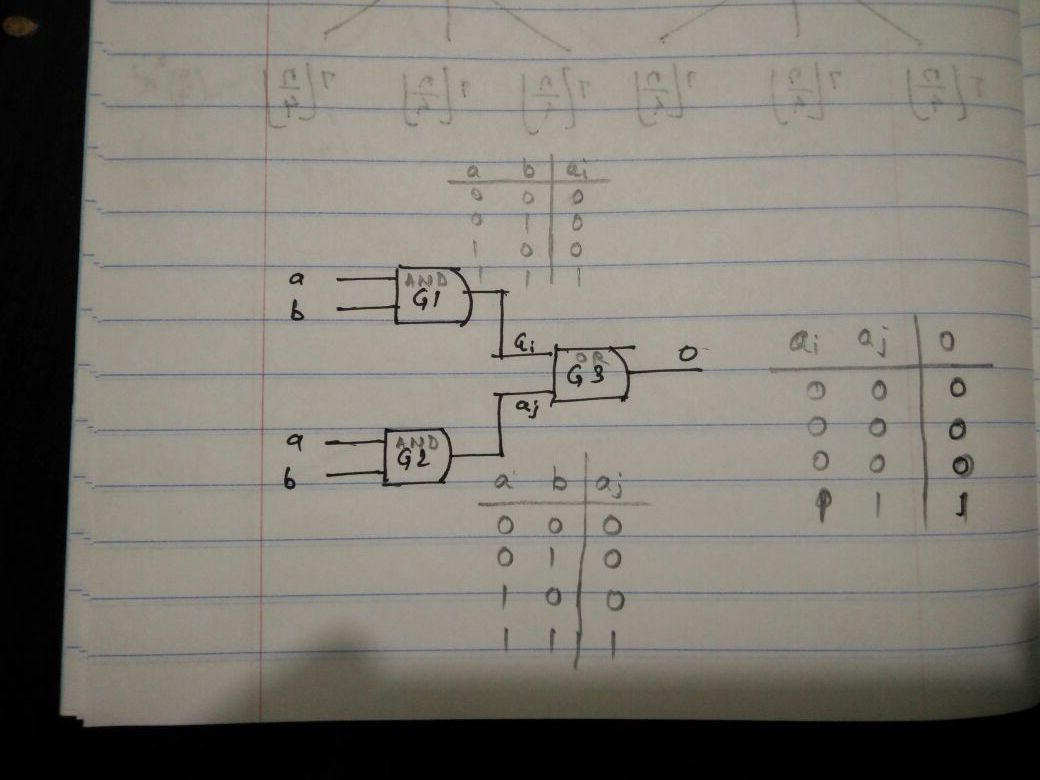 a b ai
0 0 0
0 1 0
1 0 0
1 1 1
a
b
AND
G1
ai
OR
G3
0
aj
a
b
AND
G2
a b aj
0 0 0
0 1 0
1 0 0
1 1 1
ai aj 0
0 0 0
0 0 0
0 0 0
1 1 1